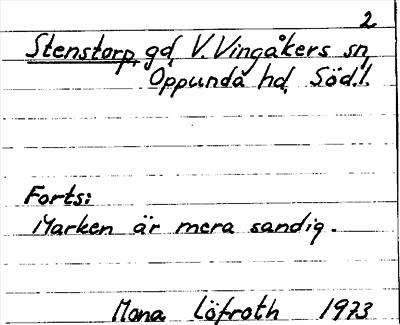 2
Stenstorp, gd, V. Vingåkers sn,
Oppunda hd, Södl.
Forts:
Marken är mera sandig.
Mona Löfroth 1973